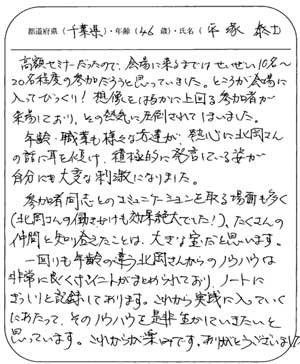 都道府県(千葉県)・年齢(46歳)・氏名(平塚 恭功
高額セミナーだったので、会場に来るまではせいぜい10名〜
20名程度の参加だろうと思っていました。ところが会場に
入ってびっくり!想像をはるかに上回る参加者が
来場しており、その熱気に圧倒されてしまいました。
年齢・職業も様々な方達が、熱心に北岡さん
の話に耳を傾け、積極的に発言している姿が
自分にも大変な刺激になりました。
参加者同志とのコミュニケーションを取る場面も多く
(北岡さんの働きかけも効果絶大でした!)、たくさんの
仲間と知り会えたことは、大きな宝だと思います。
一回りも年齢の違う北岡さんからのノウハウは
非常に良くポイントがまとめられており、ノートに
ぎっしりと記録してあります。これから実践に入っていく
にあたって、そのノウハウを是非生かしていきたいと
思っています。これからが楽しみです。ありがとうございました